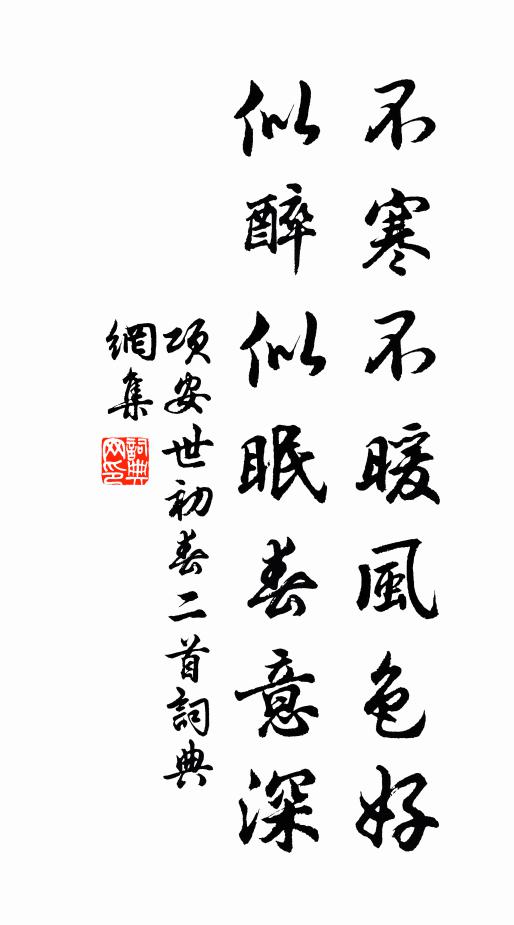 不寒不暖風色好
似醉似眠春意深
項安世初春二首詞典
網集
詞典網印